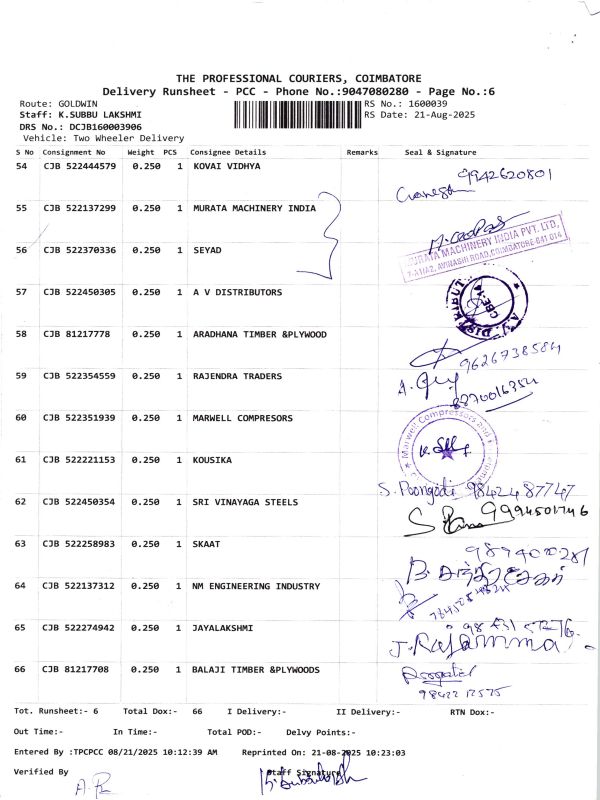 THE PROFESSIONAL COURIERS, COIMBATORE
Delivery Runsheet - PCC - Phone No.:9047080280 - Page No.:6
Route: GOLDWIN RS No.: 1600039
Staff: K.SUBBU LAKSHMI RS Date: 21-Aug-2025
DRS No.: DCJB160003906
Vehicle: Two Wheeler Delivery
S No Consignment No Weight PCS Consignee Details Remarks Seal & Signature
54 CJB 522444579 0.250 1 KOVAI VIDHYA 9942620801
55 CJB 522137299 0.250 1 MURATA MACHINERY INDIA
MURATA MACHINERY INDIA PVT. LTD,
7-A1/A2, AVINASHI ROAD, COIMBATORE 641 014
56 CJB 522370336 0.250 1 SEYAD
57 CJB 522450305 0.250 1 A V DISTRIBUTORS
58 CJB 81217778 0.250 1 ARADHANA TIMBER &PLYWOOD 9626738584
59 CJB 522354559 0.250 1 RAJENDRA TRADERS
60 CJB 522351939 0.250 1 MARWELL COMPRESORS Marwell Compressors and
61 CJB 522221153 0.250 1 KOUSIKA S. Poongodi 9842487747
62 CJB 522450354 0.250 1 SRI VINAYAGA STEELS 9994501746
63 CJB 522258983 0.250 1 SKAAT
64 CJB 522137312 0.250 1 NM ENGINEERING INDUSTRY
65 CJB 522274942 0.250 1 JAYALAKSHMI J. Rajamma
66 CJB 81217708 0.250 1 BALAJI TIMBER &PLYWOODS
Tot. Runsheet:- 6 Total Dox:- 66 I Delivery:- II Delivery:- RTN Dox:-
Out Time:- In Time:- Total POD:- Delvy Points:-
Entered By :TPCPCC 08/21/2025 10:12:39 AM Reprinted On: 21-08-2025 10:23:03
Verified By Staff Signature